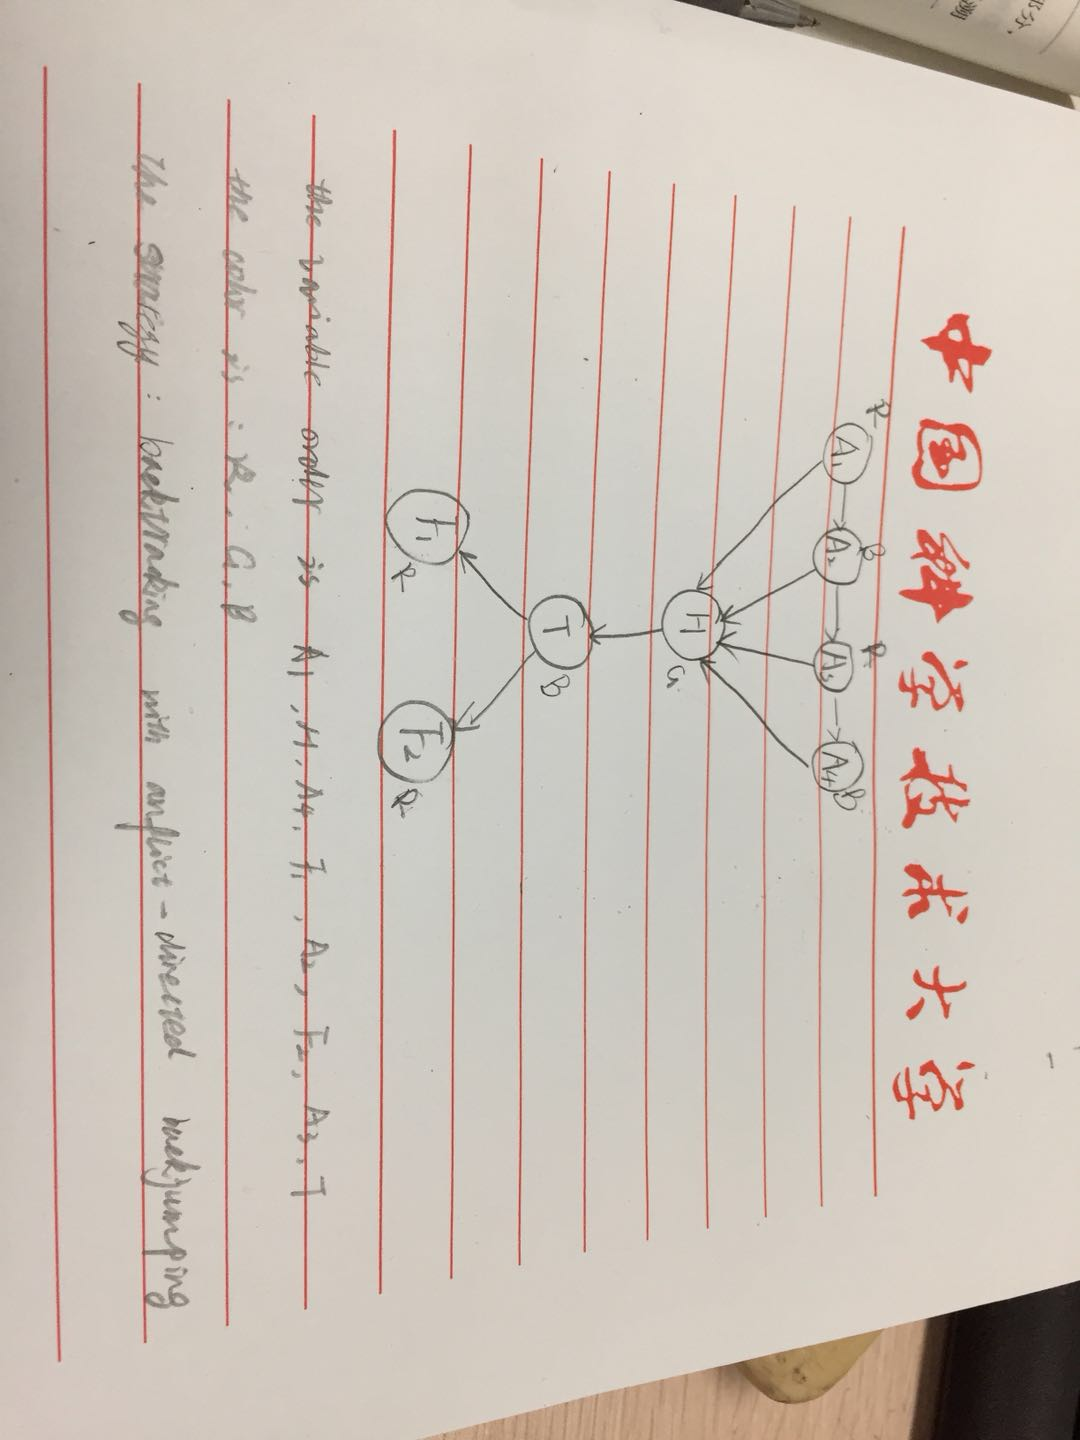 中国科学技术大学
R B R B
A₁ A₂ A₃ A₄
H
G
T
B
F₁ F₂
R R
the variable order is A₁, H, A₄, F₁, A₂, F₂, A₃, T
the color is : R, G, B
the strategy : backtracking with conflict-directed backjumping